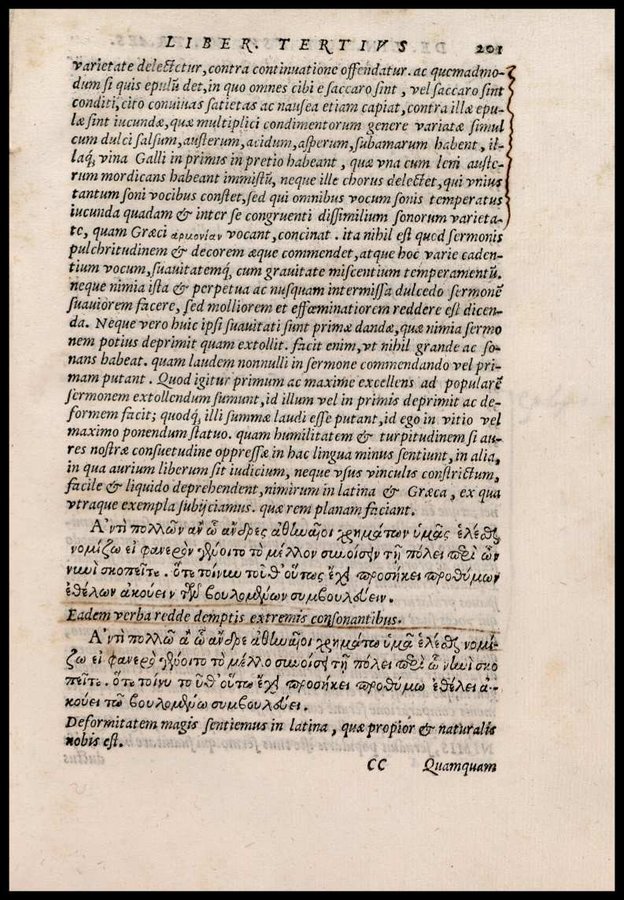 LIBER. TERTIVS 201
varietate delectetur, contra continuatione offendatur. ac quemadmo-
dum si quis epulū det, in quo omnes cibi e saccaro sint, vel saccaro sint
conditi, cito conuiuas satietas ac nausea etiam capiat, contra illæ epu-
læ sint iucundæ, quæ multiplici condimentorum genere variatæ simul
cum dulci salsum, austerum, acidum, asperum, subamarum habent, il-
laq́, vina Galli in primis in pretio habeant, quæ vna cum leni auste-
rum mordicans habeant immistū, neque ille chorus delectet, qui vnius
tantum soni vocibus constet, sed qui omnibus vocum sonis temperatus
iucunda quadam & inter se congruenti dissimilium sonorum varieta-
te, quam Græci αρμονίαν vocant, concinat. ita nihil est quod sermonis
pulchritudinem & decorem æque commendet, atque hoc varie caden-
tium vocum, suauitatemq́, cum grauitate miscentium temperamentū.
neque nimia ista & perpetua ac nusquam intermissa dulcedo sermonē
suauiorem facere, sed molliorem et effœminatiorem reddere est dicen-
da. Neque vero huic ipsi suauitati sunt primæ dandæ, quæ nimia sermo
nem potius deprimit quam extollit. facit enim, vt nihil grande ac so-
nans habeat. quam laudem nonnulli in sermone commendando vel pri-
mam putant. Quod igitur primum ac maxime excellens ad popularē
sermonem extollendum sumunt, id illum vel in primis deprimit ac de-
formem facit; quodq́, illi summæ laudi esse putant, id ego in vitio vel
maximo ponendum statuo. quam humilitatem & turpitudinem si au-
res nostræ consuetudine oppressæ in hac lingua minus sentiunt, in alia,
in qua aurium liberum sit iudicium, neque vsus vinculis constrictum,
facile & liquido deprehendent, nimirum in latina & Græca, ex qua
vtraque exempla subijciamus. quæ rem planam faciant.
Αντὶ πολλῶν ἂν ὦ ἄνδρες ἀθηναῖοι χρημάτων ὑμᾶς ἑλέσθαι
νομίζω εἰ φανερὸν γένοιτο τὸ μέλλον συνοίσειν τῇ πόλει περὶ ὧν
νυνὶ σκοπεῖτε. ὅτε τοίνυν τοῦθ᾽ οὕτως ἔχει προσήκει προθύμων
ἐθέλων ἀκούειν τῶν βουλομένων συμβουλεύειν.
Eadem verba redde demptis extremis consonantibus.
Αντὶ πολλῶ ἂ ὦ ἄνδρε ἀθηναῖοι χρημάτω ὑμᾶ ἑλέσθαι νομί-
ζω εἰ φανερὸ γένοιτο τὸ μέλλο συνοίσει τῇ πόλει περὶ ὧ νυνὶ σκο
πεῖτε. ὅτε τοίνυ τοῦθ᾽ οὕτω ἔχει προσήκει προθύμω ἐθέλει ἀ-
κούει τῶ βουλομένω συμβουλεύει.
Deformitatem magis sentiemus in latina, quæ propior & naturalis
nobis est.
CC Quamquam